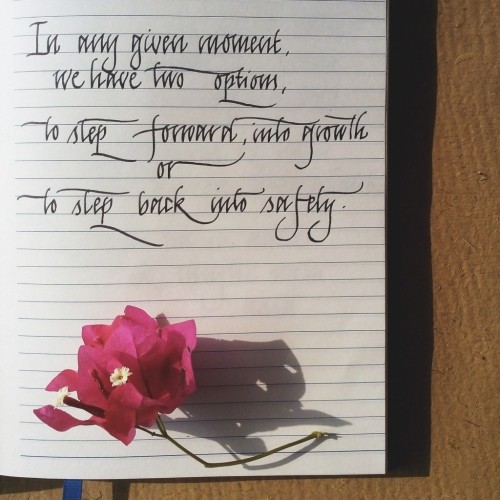 In any given moment,
we have two options,
to step forward, into growth
or
to step back into safety.